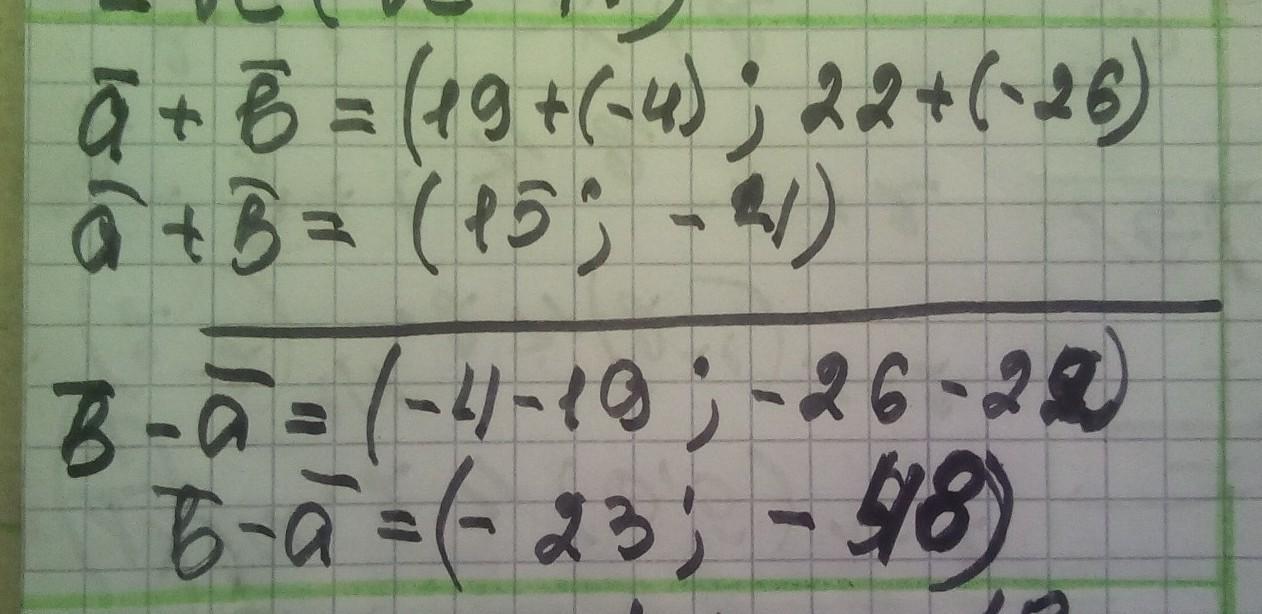 ā + b̄ = (19 + (-4) ; 22 + (-26)
ā + b̄ = (15 ; - 4)
b̄ - ā = (-4 - 19 ; -26 - 22)
b̄ - ā = (- 23 ; - 48)